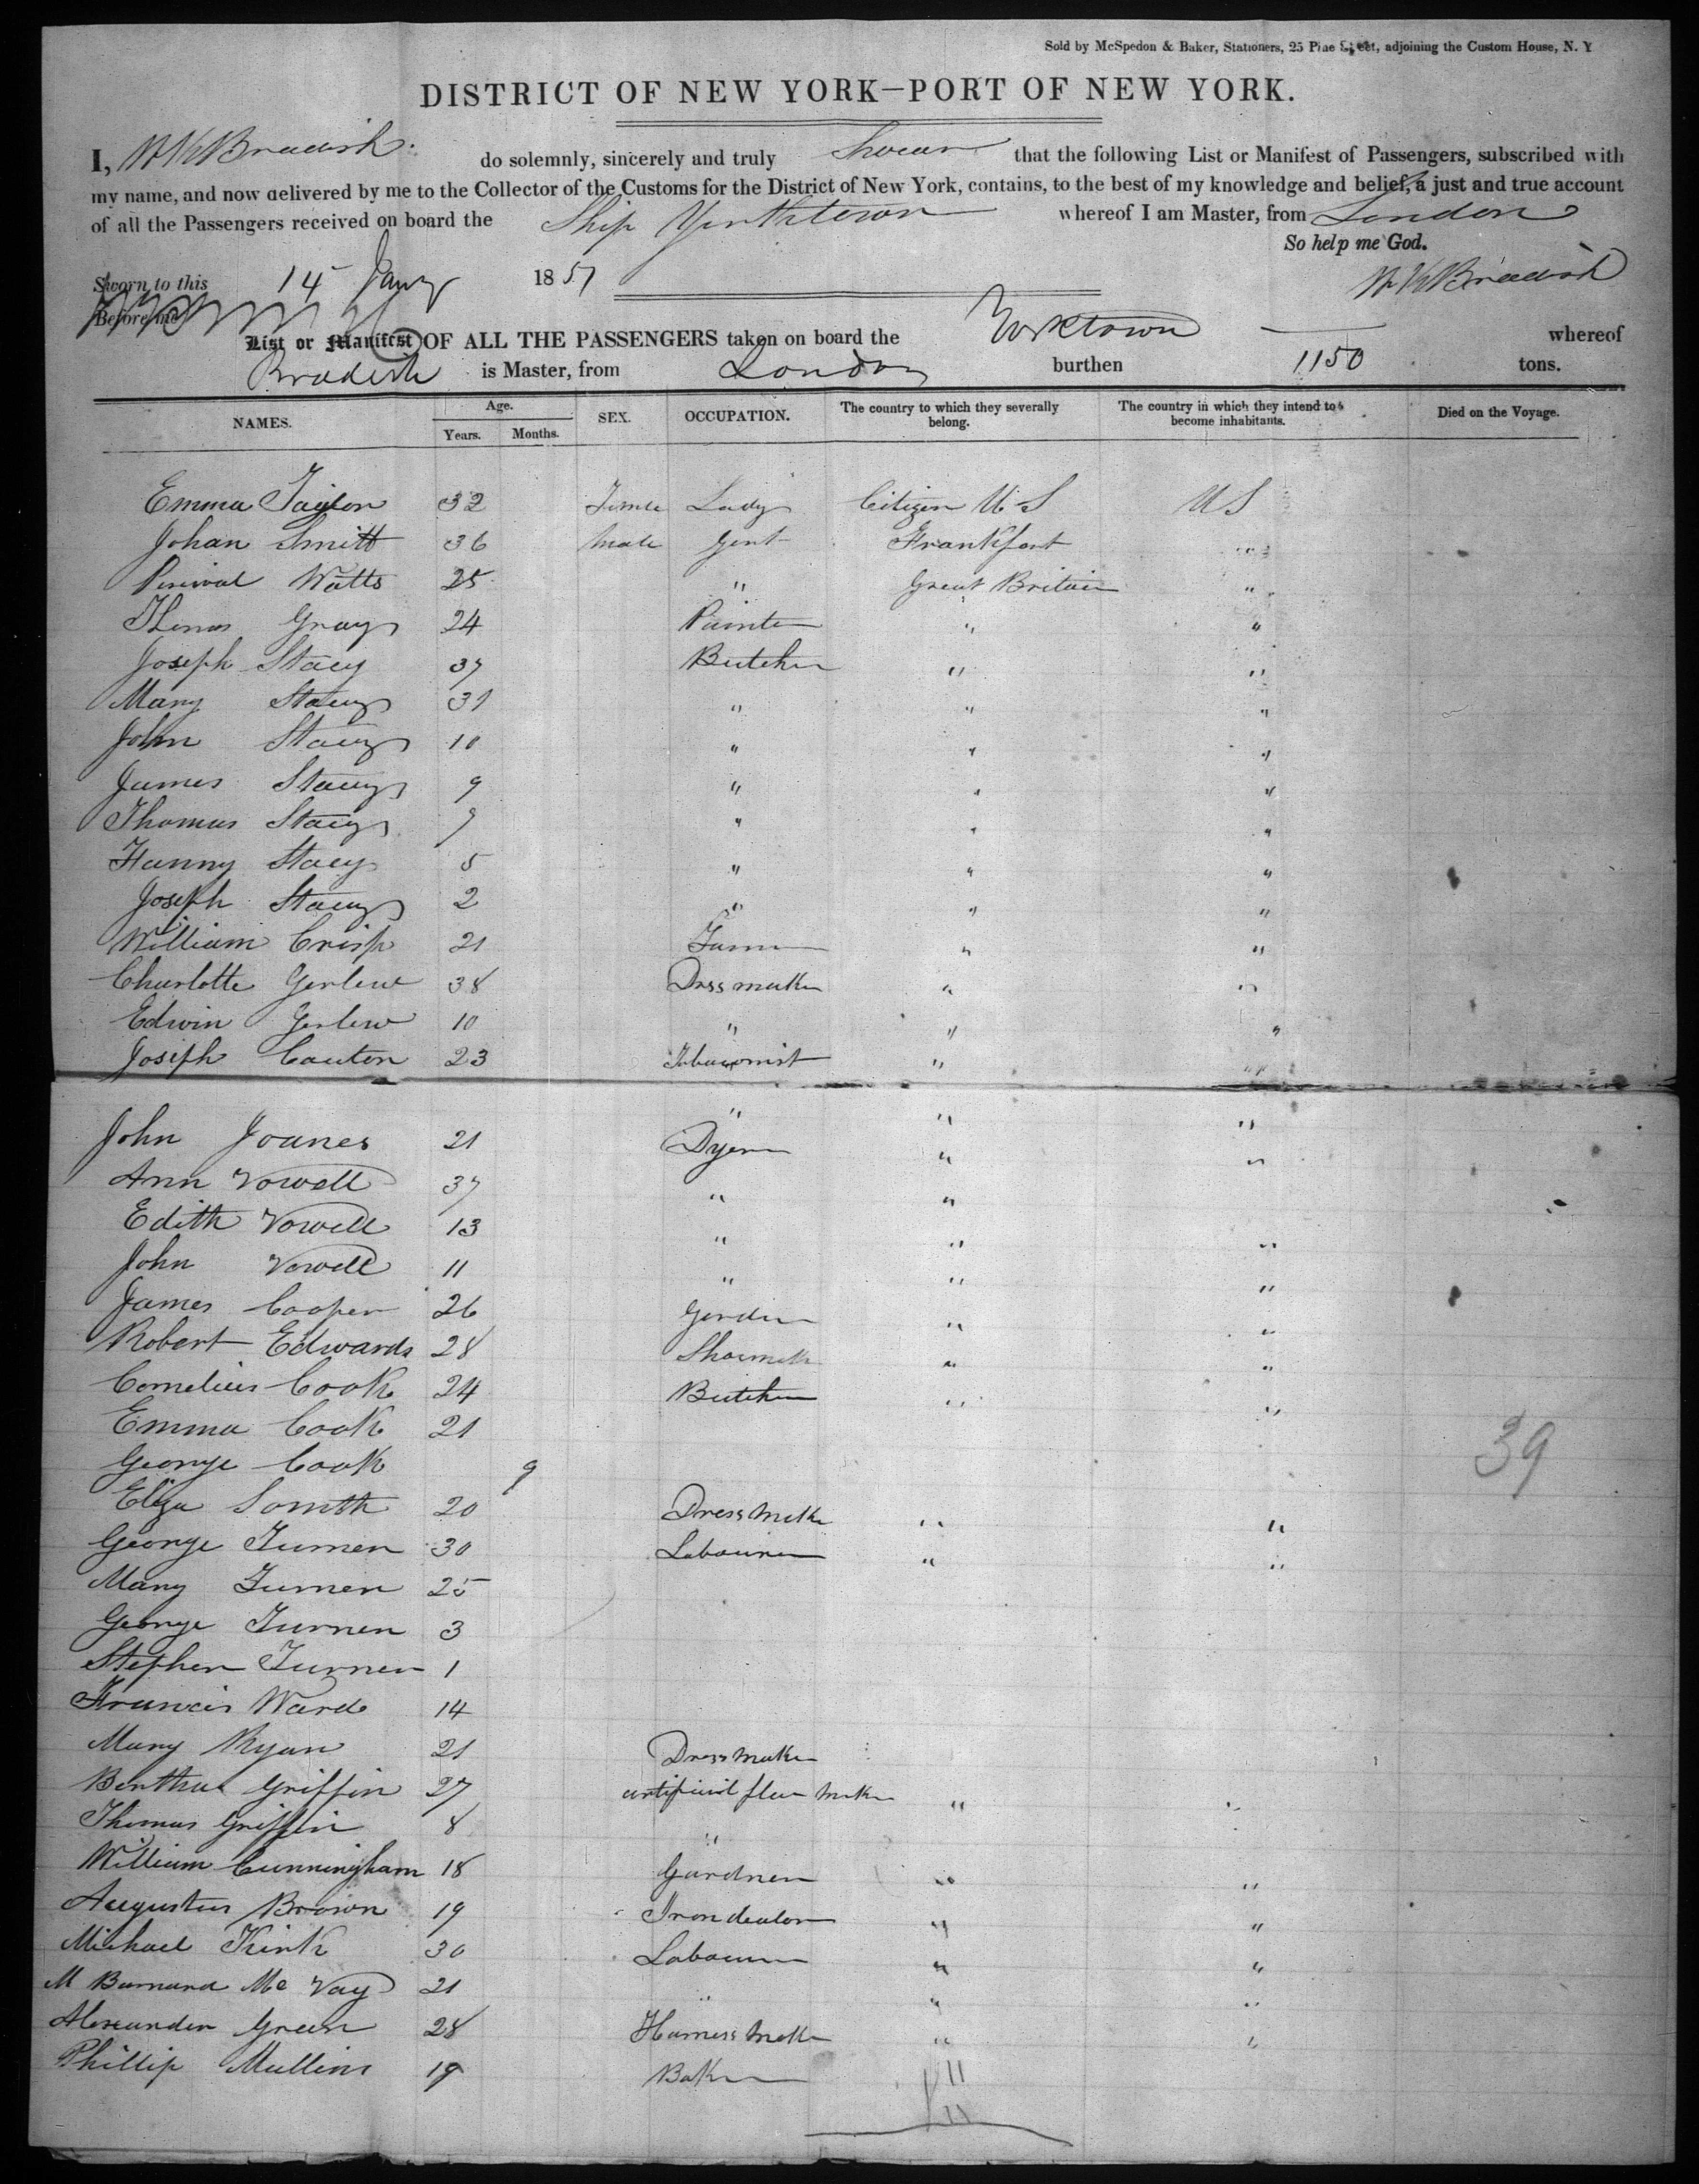 Sold by McSpedon & Baker, Stationers, 25 Pine Street, adjoining the Custom House, N. Y
DISTRICT OF NEW YORK—PORT OF NEW YORK.
I, W K Bradish. do solemnly, sincerely and truly Swear that the following List or Manifest of Passengers, subscribed with
my name, and now delivered by me to the Collector of the Customs for the District of New York, contains, to the best of my knowledge and belief, a just and true account
of all the Passengers received on board the Ship Yorktown whereof I am Master, from London
So help me God.
Sworn to this 14 Jany 1851 W K Bradish
Before me
List or Manifest OF ALL THE PASSENGERS taken on board the Yorktown whereof
Bradish is Master, from London burthen 1150 tons.
NAMES. Age. Years. Months. SEX. OCCUPATION. The country to which they severally belong. The country in which they intend to become inhabitants. Died on the Voyage.
Emma Taylor 32 Female Lady Citizen U S U S
Johan Smitt 36 Male Gent Frankfort " "
Percival Watts 25 " Great Britain "
Thomas Gray 24 Painter " "
Joseph Stacy 37 Butcher " "
Mary Stacy 31 " " "
John Stacy 10 " " "
James Stacy 9 " " "
Thomas Stacy 7 " " "
Fanny Stacy 5 " " "
Joseph Stacy 2 " " "
William Crisp 21 Farmer " "
Charlotte Gerlew 38 Dress maker " "
Edwin Gerlew 10 " " "
Joseph Cauton 23 Tobacconist " "
" " "
John Joanes 21 Dyer " "
Ann Vowell 37 " "
Edith Vowell 13 " " "
John Vowell 11 " " "
James Cooper 26 Gardner " "
Robert Edwards 28 Shoemaker " "
Cornelius Cook 24 Butcher " "
Emma Cook 21
George Cook 9 39
Eliza Somith 20 Dress Maker " "
George Turner 30 Labourer " "
Mary Turner 25
George Turner 3
Stephen Turner 1
Francis Ward 14
Mary Ryan 21 Dress Maker
Bertha Griffin 27 artificial flower Maker " "
Thomas Griffin 8 "
William Cunningham 18 Gardner " "
Augustus Brown 19 Iron dealer " "
Michael Kirk 30 Labourer " "
M Barnard Mc Vay 21 " " "
Alexander Green 28 Harness Maker " "
Phillip Mullins 19 Baker "